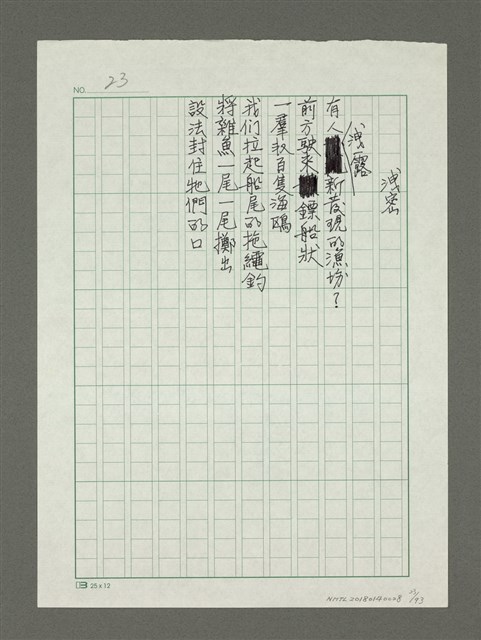 NO. 23
洩密
有人洩露新發現的漁場?
前方駛來鏢船狀
一羣數百隻海鷗
我们拉起船尾的拖繩釣
將雜魚一尾一尾擲出
設法封住牠們的口
25x12
NMTL20180140028